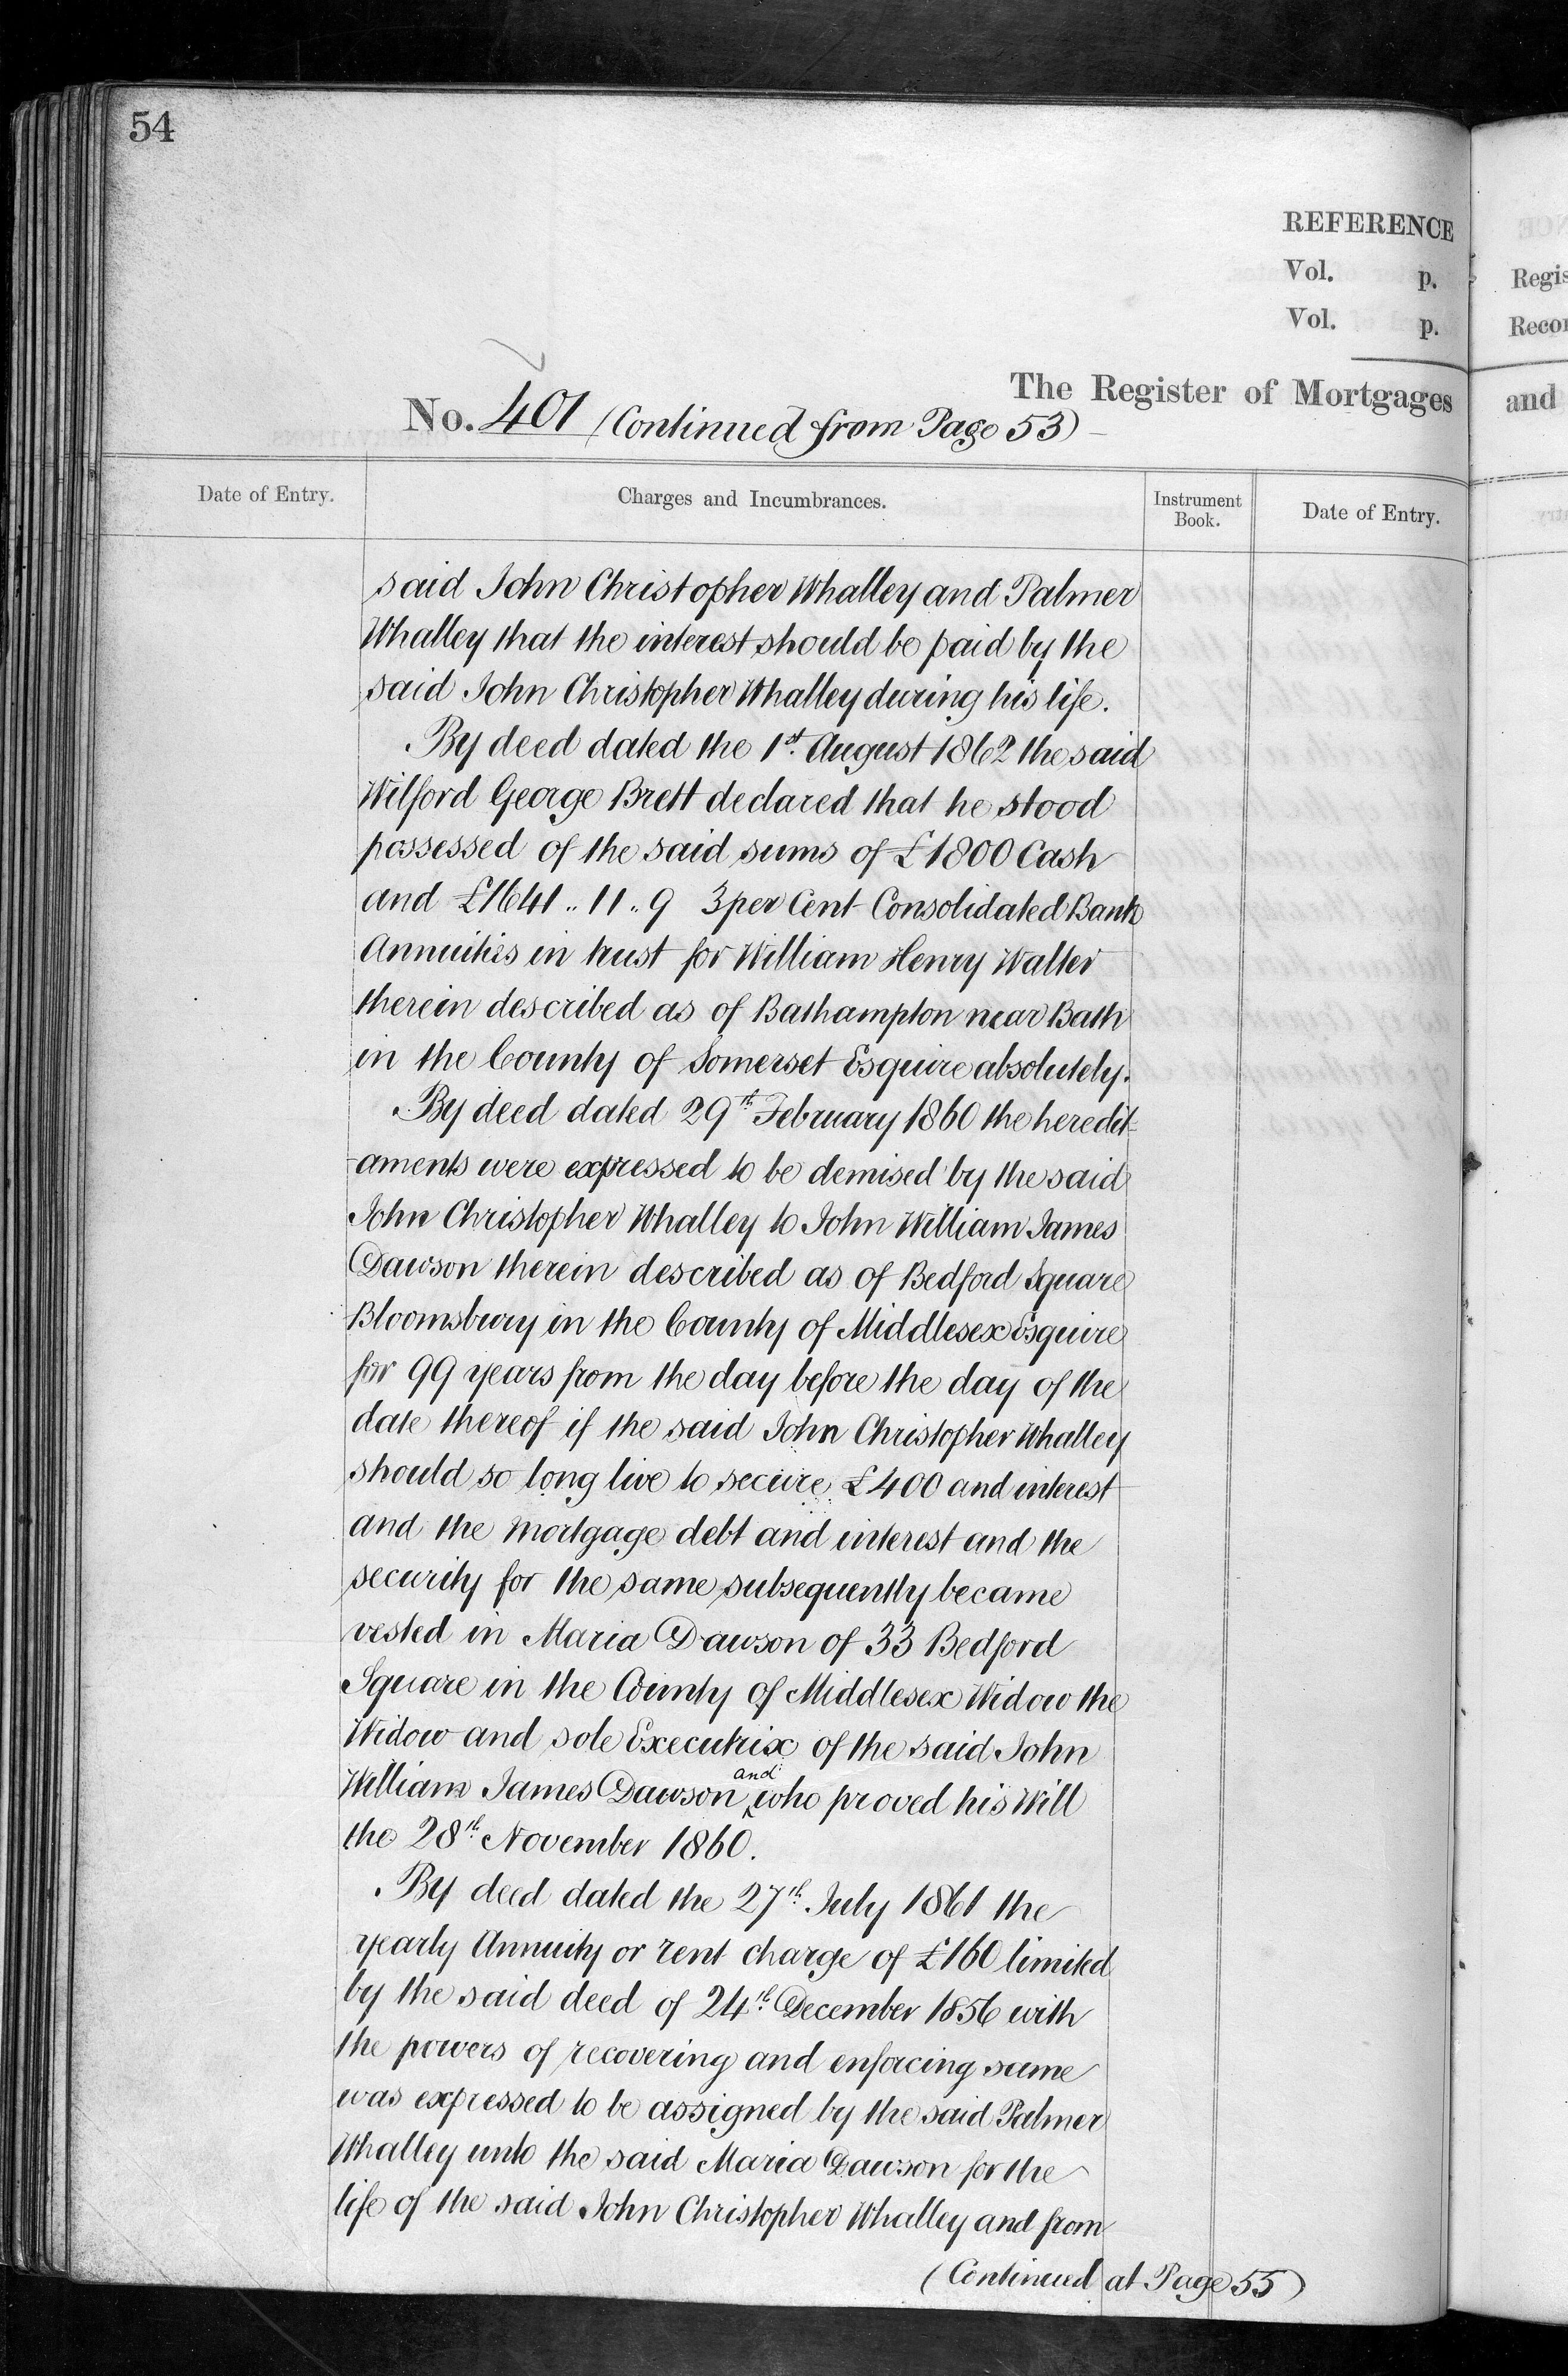 54
REFERENCE
Vol. p.
Vol. p.
The Register of Mortgages
No. 401 (Continued from Page 53)
Date of Entry.
Charges and Incumbrances.
Instrument Book.
Date of Entry.
said John Christopher Whalley and Palmer
Whalley that the interest should be paid by the
said John Christopher Whalley during his life.
By deed dated the 1st. August 1862 the said
Wilford George Brett declared that he stood
possessed of the said sums of £1800 Cash
and £1641 .. 11 .. 9 3 per Cent Consolidated Bank
Annuities in trust for William Henry Walter
therein described as of Bathampton near Bath
in the County of Somerset Esquire absolutely.
By deed dated 29th. February 1860 the heredit-
-aments were expressed to be demised by the said
John Christopher Whalley to John William James
Dawson therein described as of Bedford Square
Bloomsbury in the County of Middlesex Esquire
for 99 years from the day before the day of the
date thereof if the said John Christopher Whalley
should so long live to secure £400 and interest
and the mortgage debt and interest and the
security for the same subsequently became
vested in Maria Dawson of 33 Bedford
Square in the County of Middlesex Widow the
Widow and sole Executrix of the said John
William James Dawson and who proved his Will
the 28th. November 1860.
By deed dated the 27th. July 1861 the
yearly Annuity or rent charge of £160 limited
by the said deed of 24th. December 1856 with
the powers of recovering and enforcing same
was expressed to be assigned by the said Palmer
Whalley unto the said Maria Dawson for the
life of the said John Christopher Whalley and from
(Continued at Page 55)
Regis
Recor
and